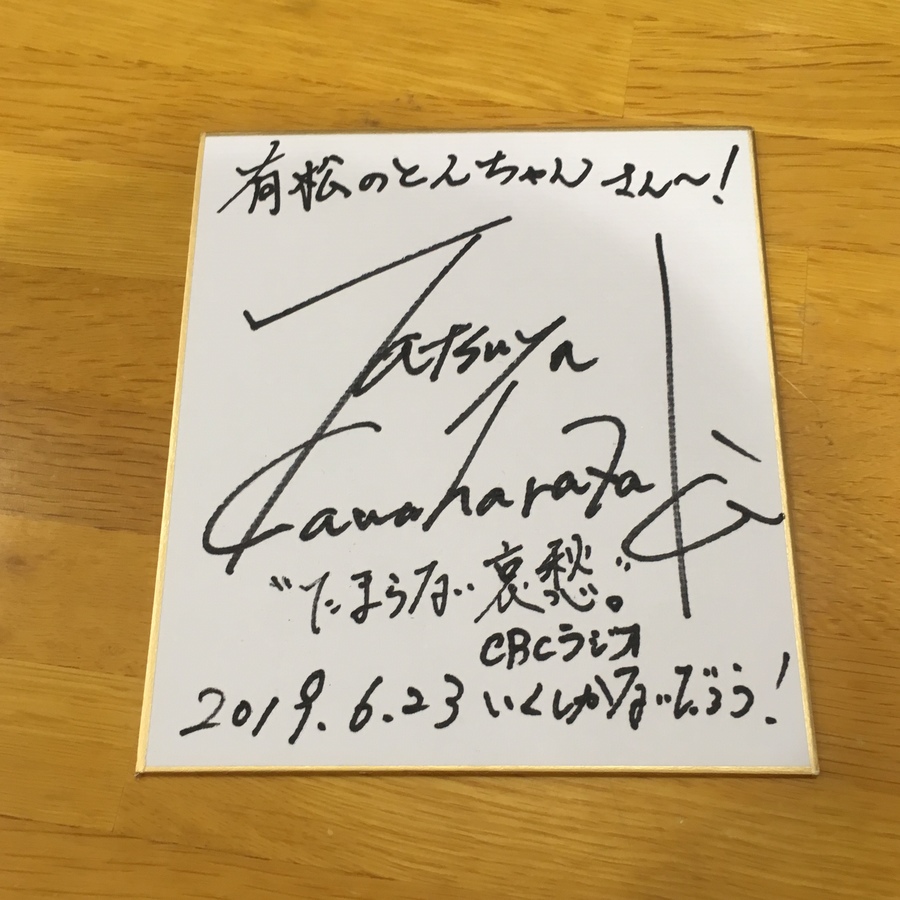 有松のとんちゃんさん〜!
Tatsuya
Kawaharazaki
"たまらない哀愁"。
CBCラジオ
2019.6.23 いくしかないだろう!